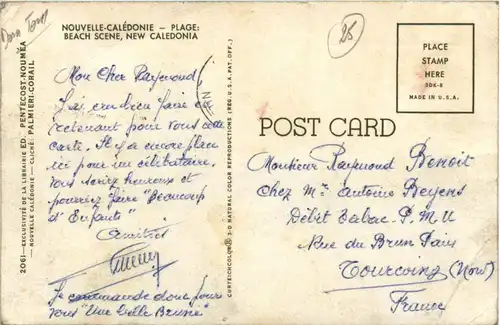 Dom Tom
NOUVELLE-CALÉDONIE - PLAGE:
BEACH SCENE, NEW CALEDONIA
28
PLACE
STAMP
HERE
DDK-8
MADE IN U.S.A.
Mon Cher Raymond
J'ai cru bien faire en
retenant pour vous cette
carte. Il y a encore place
ici pour un célibataire.
Vous seriez heureux et
pourriez faire "Beaucoup
d'Enfants"
Amitiés
Je commande donc pour
vous "Une belle Brune"
2061-EXCLUSIVITÉ DE LA LIBRAIRIE ED. PENTECOST-NOUMÉA
- NOUVELLE CALÉDONIE - CLICHÉ: PALMIERI-CORAIL
CURTEICHCOLOR® 3-D NATURAL COLOR REPRODUCTIONS (REG. U.S.A. PAT. OFF.)
POST CARD
Monsieur Raymond Benoit
Chez Mr Antoine Beyens
Débit Tabac. P.M.U
Rue du Brun Pain
Tourcoing (Nord)
France